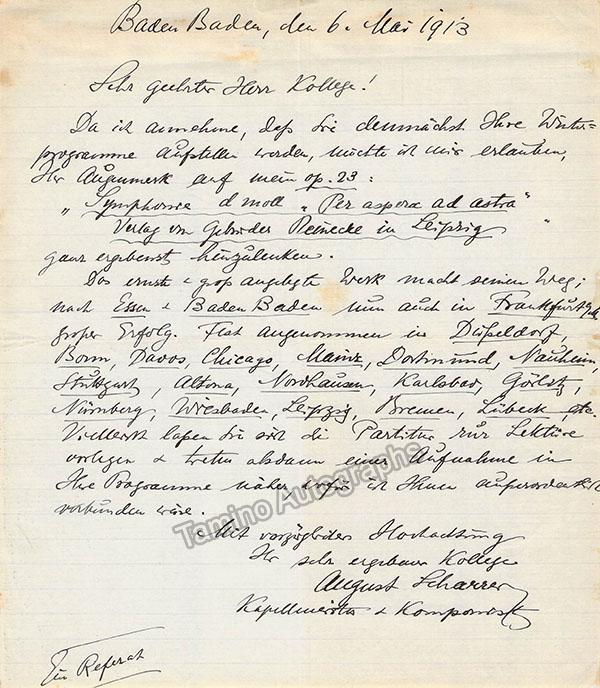 Baden Baden, den 6. Mai 1913
Sehr geehrter Herr Kollege!
Da ich annehme, daß Sie demnächst Ihre Winter=
programme aufstellen werden, möchte ich mir erlauben,
Ihr Augenmerk auf mein op. 23:
„Symphonie d moll „Per aspera ad astra"
Verlag von Gebrüder Reinecke in Leipzig "
ganz ergebenst hinzulenken.
Das ernste & groß angelegte Werk macht seinen Weg;
nach Essen & Baden Baden nun auch in Frankfurt
großer Erfolg. Fest angenommen in Düsseldorf,
Bonn, Davos, Chicago, Mainz, Dortmund, Nauheim,
Stuttgart, Altona, Nordhausen, Karlsbad, Görlitz,
Nürnberg, Wiesbaden, Leipzig, Bremen, Lübeck etc.
Vielleicht laßen Sie sich die Partitur zur Lektüre
vorlegen & treten alsdann einer Aufnahme in
Ihre Programme näher, wofür ich Ihnen außerordentlich
verbunden wäre.
Mit vorzüglicher Hochachtung
Ihr sehr ergebener Kollege
August Scharrer
Kapellmeister & Komponist
Ein Referat
Tamino Autographs